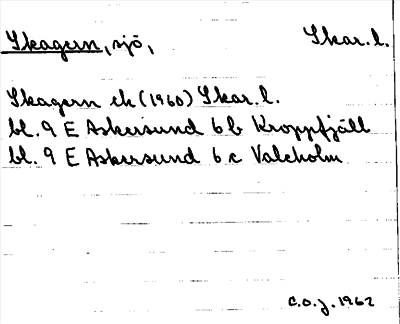 Skagern, sjö, Skar. l.
Skagern ek (1960) Skar. l.
bl. 9 E Askersund 6 b Kroppfjäll
bl. 9 E Askersund 6 c Valeholm
C.O.J. 1962